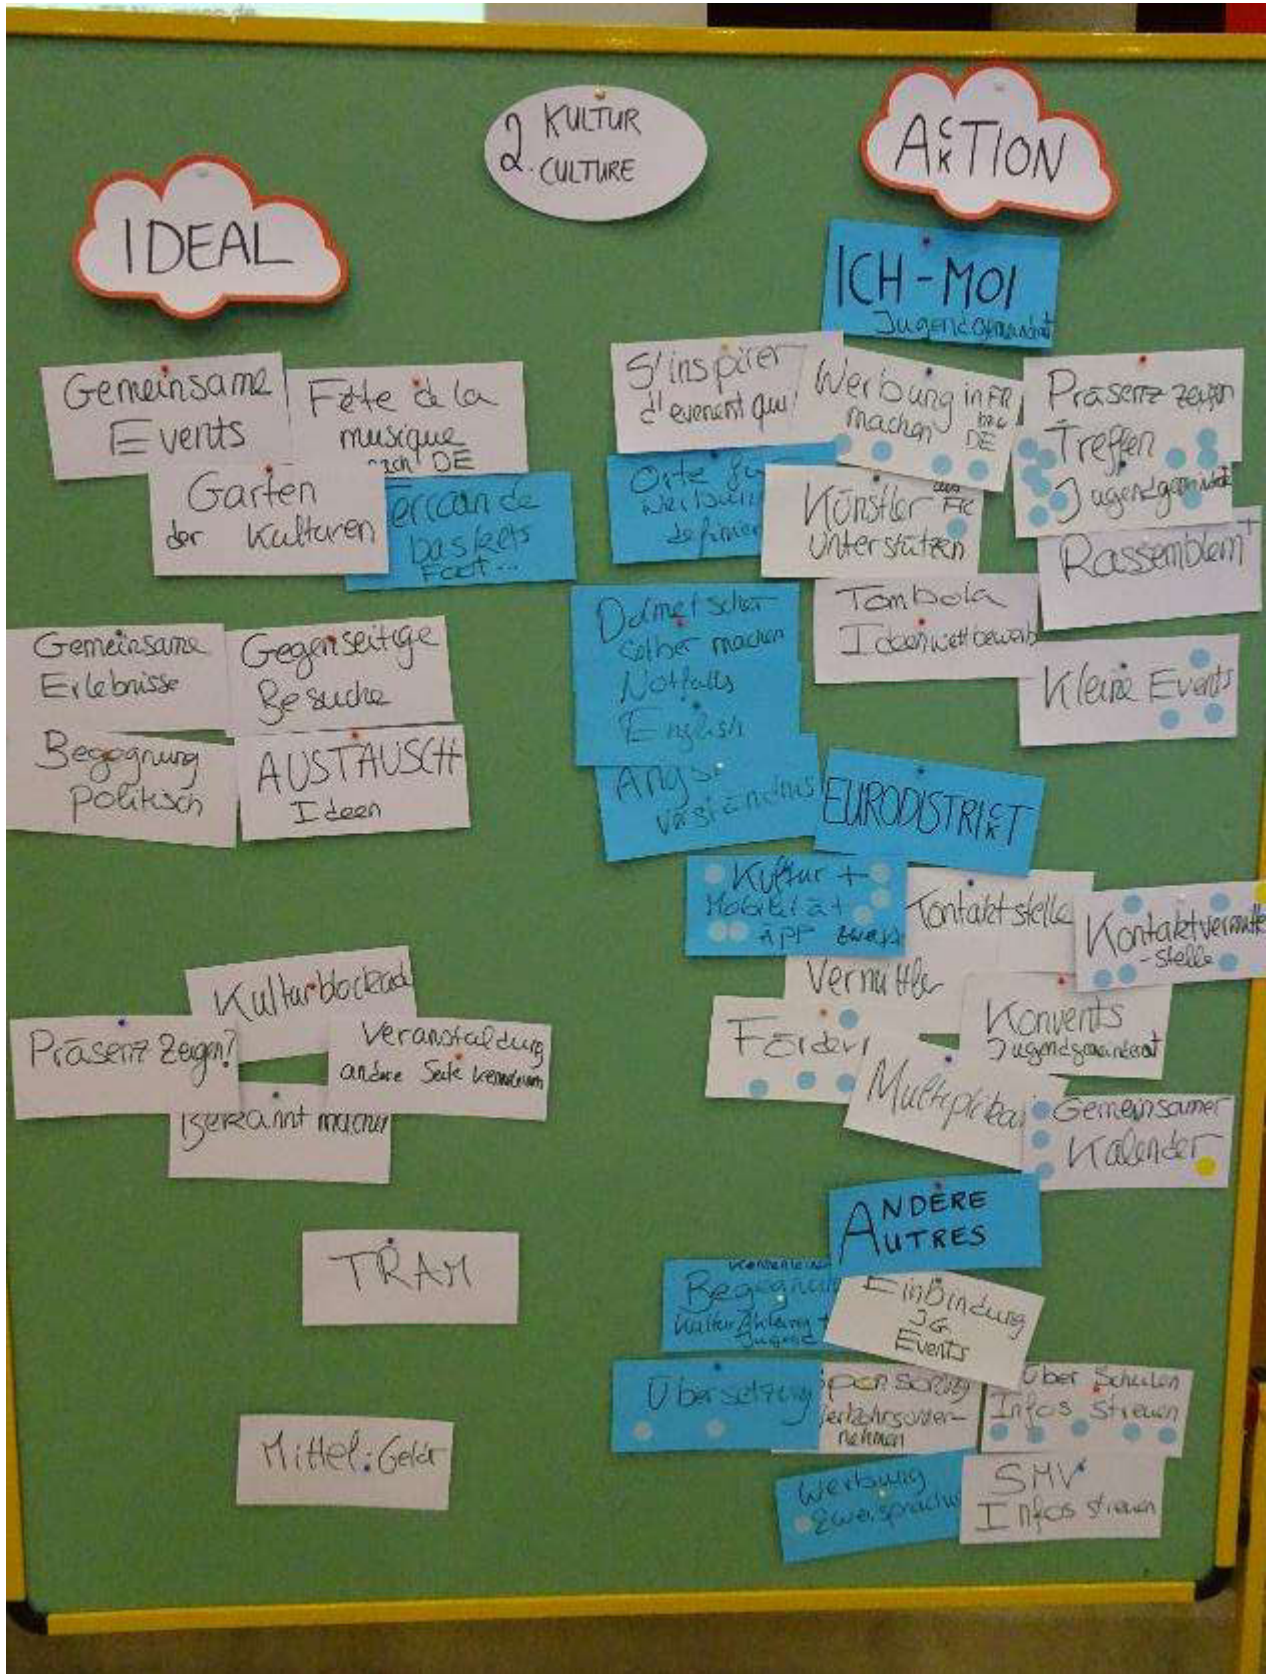 2. KULTUR
CULTURE
IDEAL
Gemeinsame
Events
Fête de la
musique
nach DE
Garten
der Kulturen
baskets
Foot...
Gemeinsame
Erlebnisse
Gegenseitige
Besuche
Begegnung
Politisch
AUSTAUSCH
Ideen
Kulturblockade
Präsenz Zeigen?
Veranstaldung
andere Seite
Bekannt machen
TRAM
Mittel: Geld
ACKTION
ICH-MOI
Jugendgemeinderat
S'inspirer
d'evenent qui
Werbung in FR
machen bzw
DE
Präsenz zeigen
Treffen
Jugendgemeinderäte
Orte für
Werbung
definier
Künstler aus FR
Unterstützen
Rassemblemt
Tombola
Ideenwettbewerb
Dolmetscher
Selber machen
Notfalls
English
Kleine Events
Angst
Verständnis
EURODISTRICKT
Kultur +
Mobilität
App
Kontaktstelle
Vermittler
Kontaktvermittl
-stelle
Fördern
Konvents
Jugendgemeinderat
Multiplikat
Gemeinsamer
Kalender
ANDERE
AUTRES
Kennenlernen
Begegnung
Kultur Abteilung +
Jugend
EinBindung
JG
Events
Übersetzung
Sponsoring
Verkehrsunter-
nehmen
Über Schulen
Infos streuen
Werbung
Zweisprachig
SMV
Infos streuen